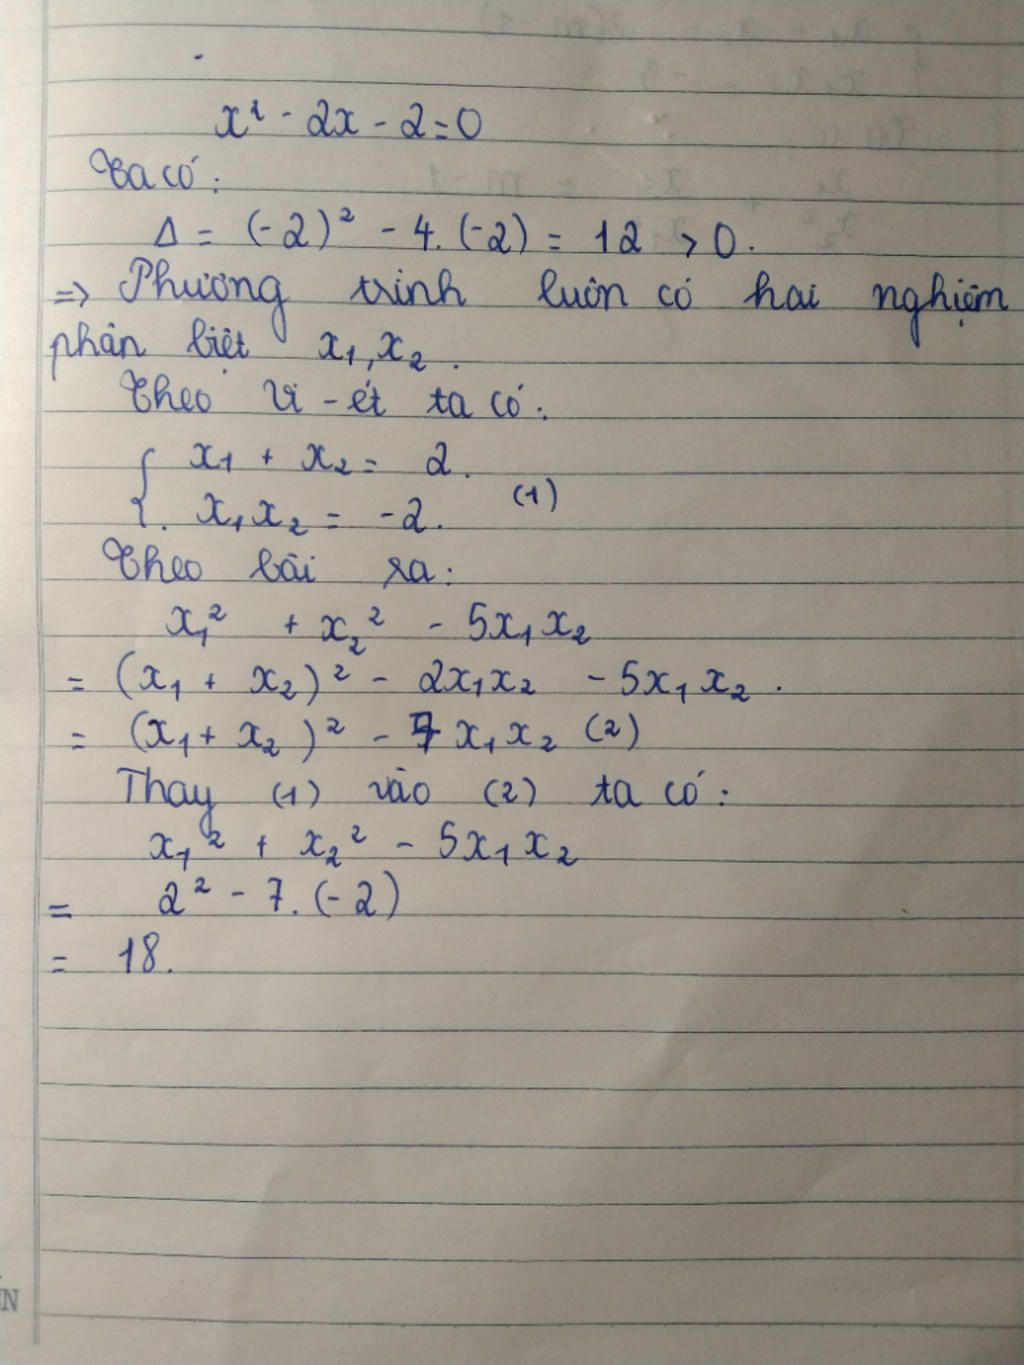 x² - 2x - 2 = 0
Ta có:
Δ = (-2)² - 4.(-2) = 12 > 0.
=> Phương trình luôn có hai nghiệm
phân biệt x₁, x₂.
Theo Vi-ét ta có:
{ x₁ + x₂ = 2.
x₁x₂ = -2. (1)
Theo bài ra:
x₁² + x₂² - 5x₁x₂
= (x₁ + x₂)² - 2x₁x₂ - 5x₁x₂.
= (x₁ + x₂)² - 7x₁x₂ (2)
Thay (1) vào (2) ta có:
x₁² + x₂² - 5x₁x₂
= 2² - 7.(-2)
= 18.